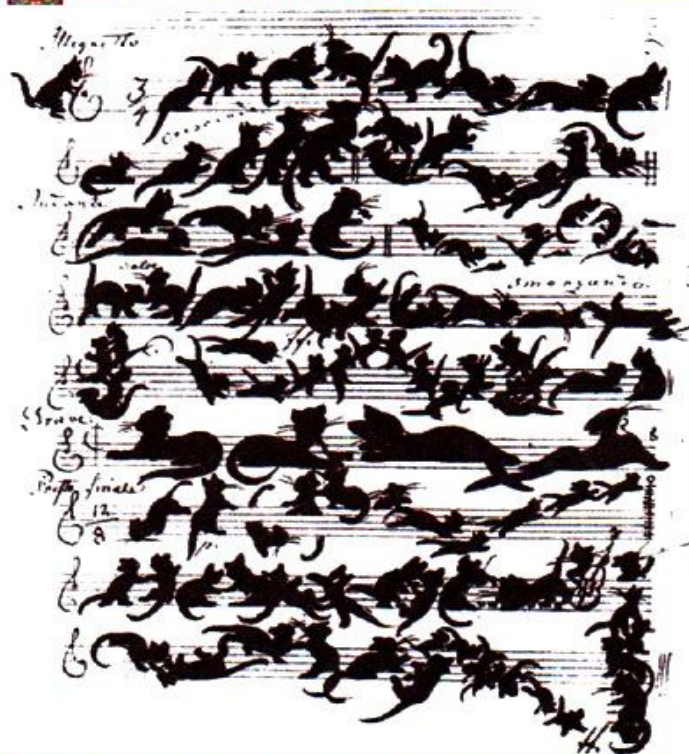 Allegretto
3/4
Crescendo
Andante
dolce
Smorzando
ff.
Grave
Presto finale
12/8
p.
ff.